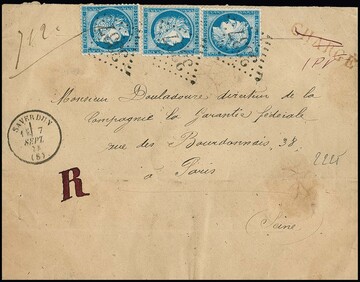 CHARGÉ
SAVERDUN
7
SEPT.
(8)
Monsieur Douladoure directeur de la
Compagnie la Garantie fédérale
rue des Bourdonnais, 38.
à Paris
Seine
R
2225